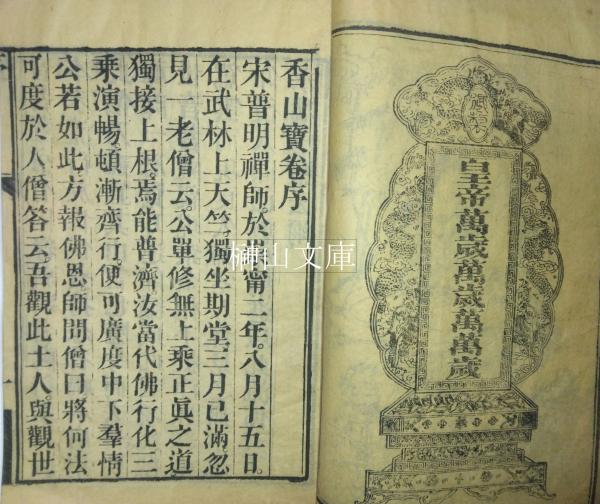 皇王帝萬歲萬歲萬萬歲
香山寶卷序
宋普明禪師於崇甯二年八月十五日
在武林上天竺獨坐期堂三月已滿忽
見一老僧云公單修無上乘正眞之道
獨接上根焉能普濟汝當代佛行化三
乘演暢頓漸齊行便可廣度中下羣情
公若如此方報佛恩師問僧曰將何法
可度於人僧答云吾觀此土人與觀世
榊山文庫